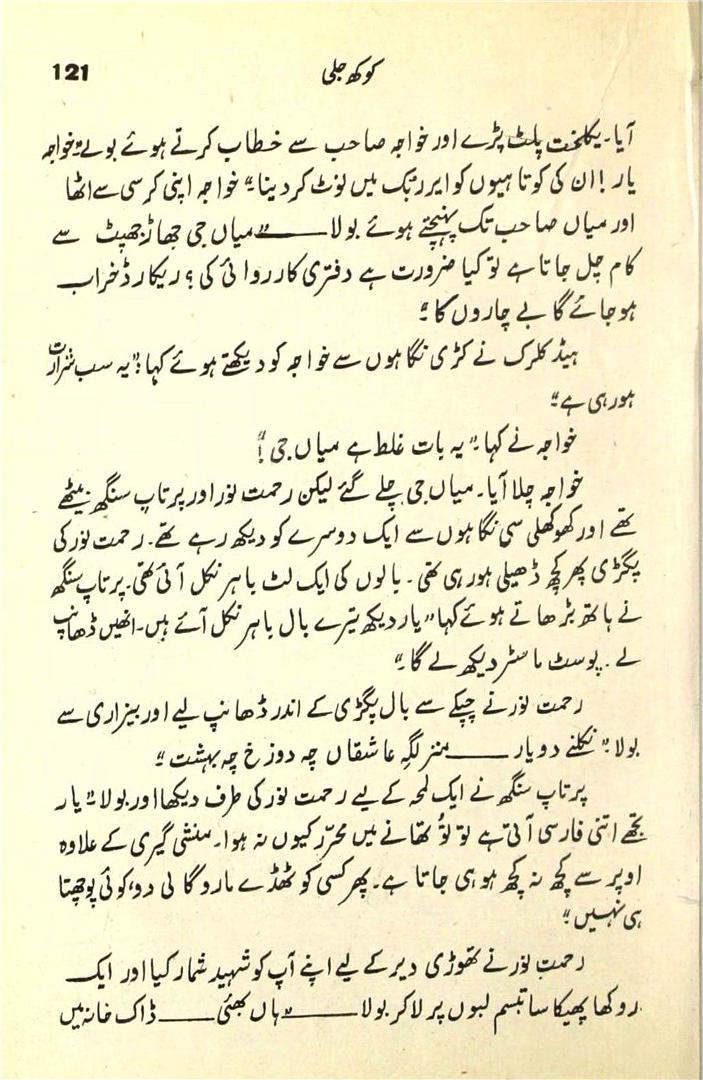 121
کوکھ جلی
آیا۔ یکلخت پلٹ پڑے اور خواجہ صاحب سے خطاب کرتے ہوئے بولے ”خواجہ
یار! ان کی کوتاہیوں کو ایرر بک میں نوٹ کر دینا“ خواجہ اپنی کرسی سے اٹھا
اور میاں صاحب تک پہنچتے ہوئے بولا ــــــ ”میاں جی جھاڑ جھپٹ سے
کام چل جاتا ہے تو کیا ضرورت ہے دفتری کارروائی کی؟ ریکارڈ خراب
ہو جائے گا بے چاروں کا“
ہیڈ کلرک نے کڑی نگاہوں سے خواجہ کو دیکھتے ہوئے کہا: ”یہ سب شرارت
ہو رہی ہے“
خواجہ نے کہا۔ ”یہ بات غلط ہے میاں جی!“
خواجہ چلا آیا۔ میاں جی چلے گئے لیکن رحمت نور اور پرتاپ سنگھ بیٹھے
تھے اور کھوکھلی سی نگاہوں سے ایک دوسرے کو دیکھ رہے تھے۔ رحمت نور کی
پگڑی پھر کچھ ڈھیلی ہو رہی تھی۔ بالوں کی ایک لٹ باہر نکل آئی تھی۔ پرتاپ سنگھ
نے ہاتھ بڑھاتے ہوئے کہا ”یار دیکھ تیرے بال باہر نکل آئے ہیں۔ انھیں ڈھانپ
لے۔ پوسٹ ماسٹر دیکھ لے گا۔“
رحمت نور نے چپکے سے بال پگڑی کے اندر ڈھانپ لیے اور بیزاری سے
بولا۔ ”نکلنے دو یار ــــــ منزلگہِ عاشقاں چہ دوزخ چہ بہشت“
پرتاپ سنگھ نے ایک لمحہ کے لیے رحمت نور کی طرف دیکھا اور بولا۔ ”یار
تجھے اتنی فارسی آتی ہے تو تُو تھانے میں محرّر کیوں نہ ہوا۔ منشی گیری کے علاوہ
اوپر سے کچھ نہ کچھ ہو ہی جاتا ہے۔ پھر کسی کو ٹھڈے مارو گالی دو، کوئی پوچھتا
ہی نہیں“
رحمت نور نے تھوڑی دیر کے لیے اپنے آپ کو شہید شمار کیا اور ایک
روکھا پھیکا سا تبسم لبوں پر لا کر بولا ــــــ ”ہاں بھئی ــــــ ڈاک خانہ میں